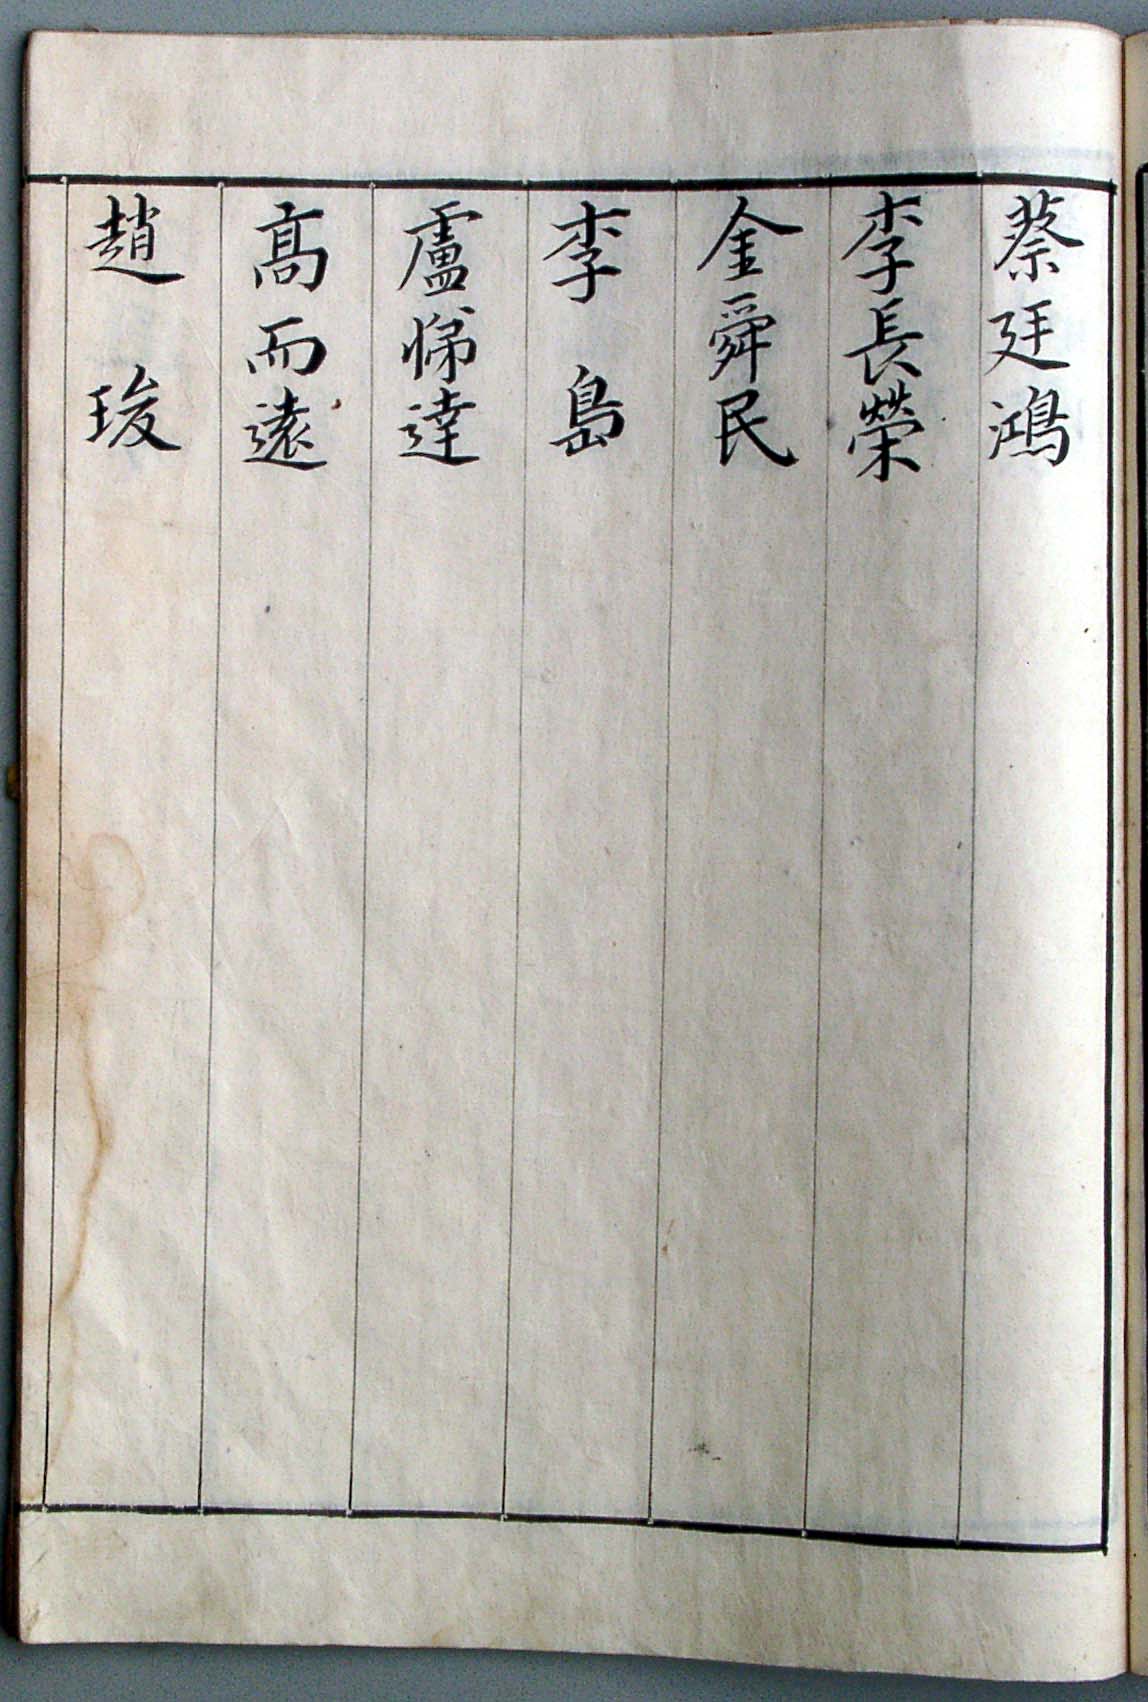 蔡廷鴻
李長榮
金舜民
李島
盧悌達
高而遠
趙珱